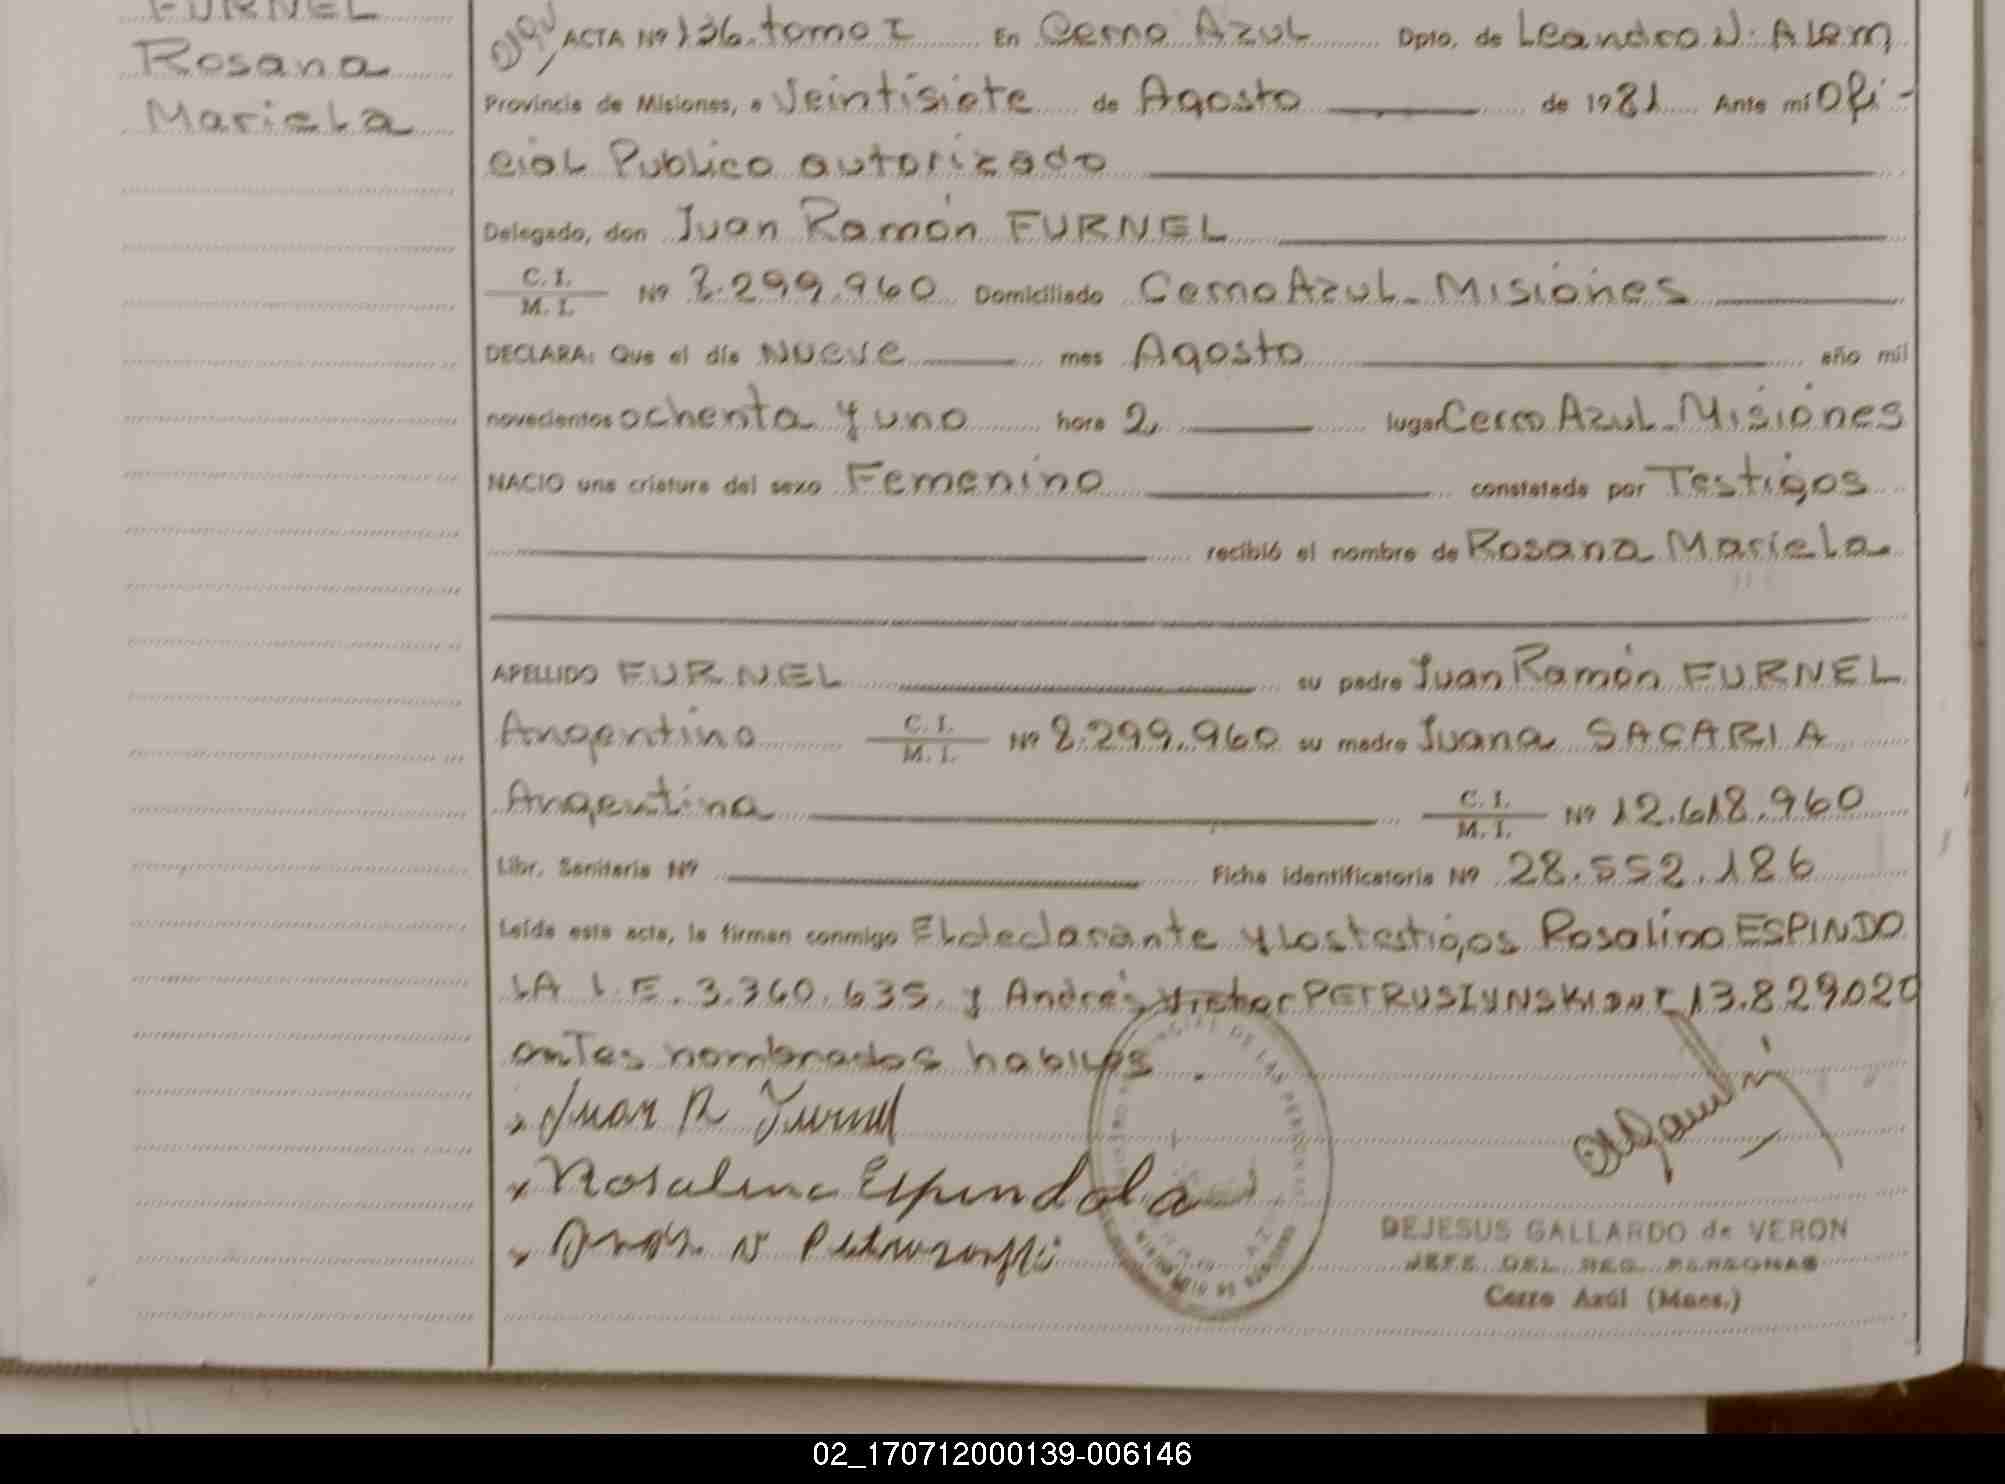 FURNEL
Rosana
Mariela
ACTA Nº 136. tomo I En Cerro Azul Dpto. de Leandro N. Alem
Provincia de Misiones, a Veintisiete de Agosto de 1981 Ante mí Ofi-
cial Publico autorizado
Delegado, don Juan Ramón FURNEL
C. I.
M. I. Nº 8.299.960 Domiciliado Cerro Azul - Misiones
DECLARA: Que el día Nueve mes Agosto año mil
novecientos ochenta y uno hora 2, lugar Cerro Azul - Misiones
NACIO una criatura del sexo Femenino constatada por Testigos
recibió el nombre de Rosana Mariela
APELLIDO FURNEL su padre Juan Ramón FURNEL
Argentino C. I.
M. I. Nº 8.299.960 su madre Juana SACARIA
Argentina C. I.
M. I. Nº 12.618.960
Libr. Sanitaria Nº Ficha identificatoria Nº 28.552.186
Leída esta acta, la firman conmigo El declarante y los testigos Rosalino ESPINDO
LA L.E. 3.360.635. y Andrés Victor PETRUSZYNSKI DNI 13.829.020
antes nombrados habiles.
Juan R Furnel
Rosalino Espindola
DEJESUS GALLARDO de VERON
JEFE DEL REG. PERSONAS
Cerro Azúl (Mnes.)
02_170712000139-006146